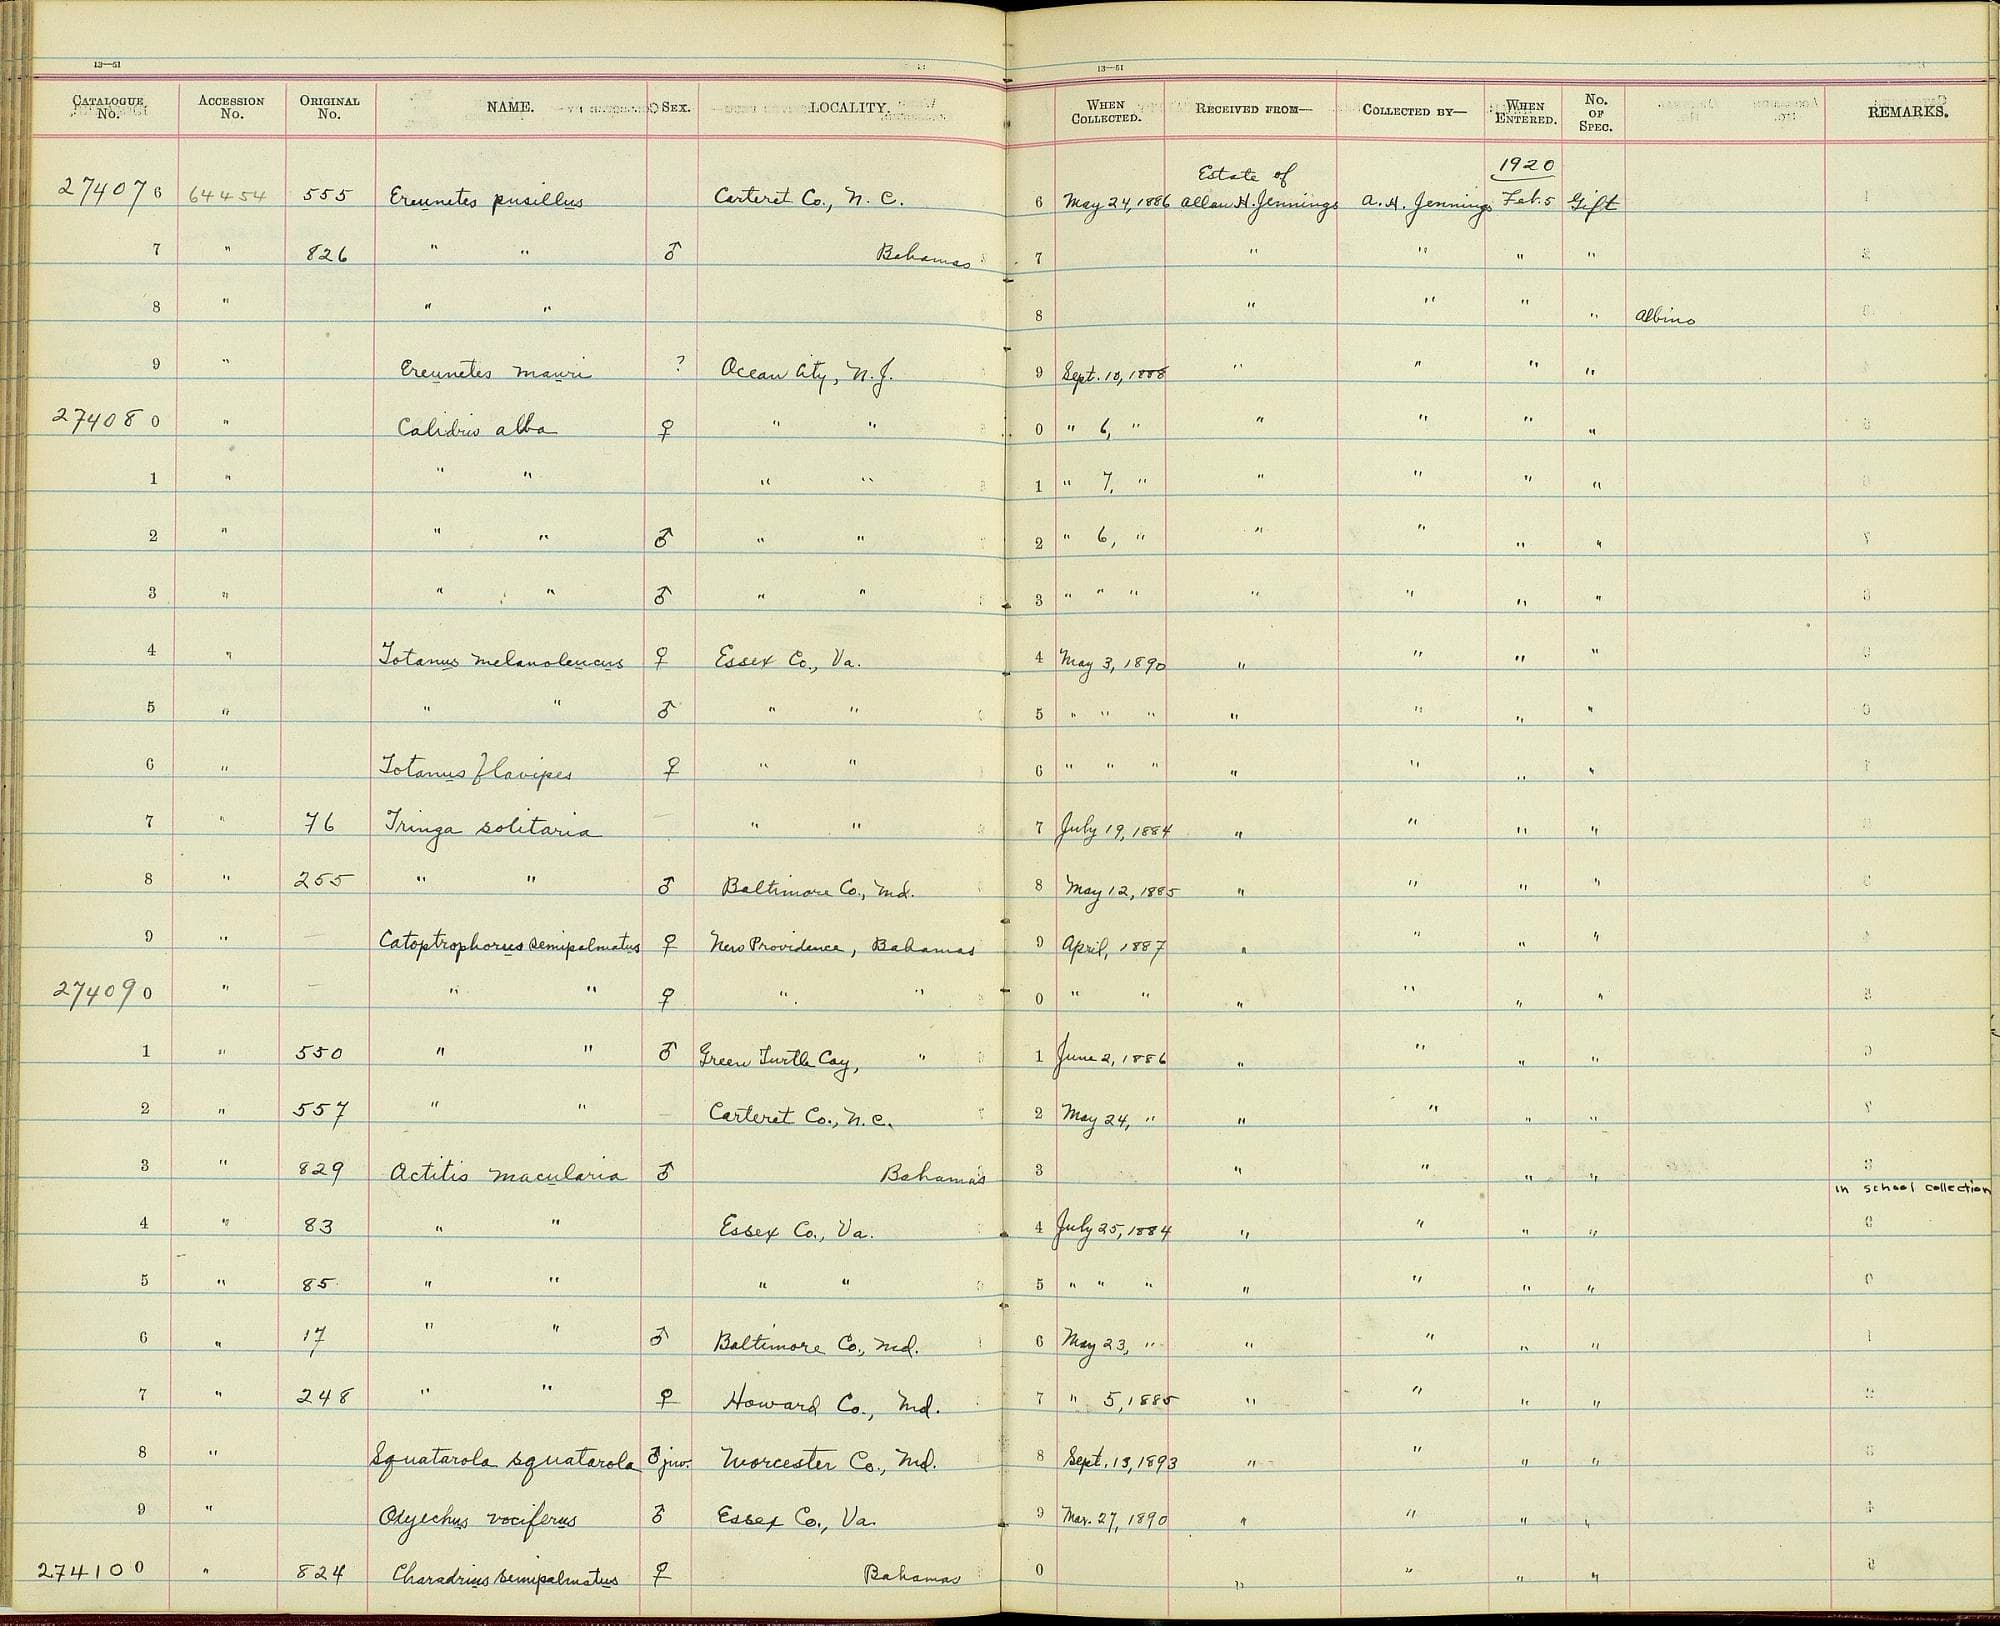 13—51 13—51
CATALOGUE No. ACCESSION No. ORIGINAL No. NAME. SEX. LOCALITY. WHEN COLLECTED. RECEIVED FROM— COLLECTED BY— WHEN ENTERED. No. OF SPEC. REMARKS.
274076 64454 555 Ereunetes pusillus Carteret Co., N. C. 6 May 24, 1886 Estate of Allan H. Jennings A. H. Jennings 1920 Feb. 5 Gift
7 " 826 " " ♂ Bahamas 7 " " " "
8 " " " 8 " " " " Albino
9 " Ereunetes mauri ? Ocean City, N. J. 9 Sept. 10, 1888 " " " "
274080 " Calidris alba ♀ " " 0 " 6, " " " " "
1 " " " " " 1 " 7, " " " " "
2 " " " ♂ " " 2 " 6, " " " " "
3 " " " ♂ " " 3 " " " " " " "
4 " Totanus melanoleucus ♀ Essex Co., Va. 4 May 3, 1890 " " " "
5 " " " ♂ " " 5 " " " " " " "
6 " Totanus flavipes ♀ " " 6 " " " " " " "
7 " 76 Tringa solitaria — " " 7 July 19, 1884 " " " "
8 " 255 " " ♂ Baltimore Co., Md. 8 May 12, 1885 " " " "
9 " — Catoptrophorus semipalmatus ♀ New Providence, Bahamas 9 April, 1887 " " " "
274090 " — " " ♀ " " 0 " " " " " "
1 " 550 " " ♂ Green Turtle Cay, " 1 June 2, 1886 " " " "
2 " 557 " " — Carteret Co., N. C. 2 May 24, " " " " "
3 " 829 Actitis macularia ♂ Bahamas 3 " " " " in school collection
4 " 83 " " Essex Co., Va. 4 July 25, 1884 " " " "
5 " 85 " " " " 5 " " " " " " "
6 " 17 " " ♂ Baltimore Co., Md. 6 May 23, " " " " "
7 " 248 " " ♀ Howard Co., Md. 7 " 5, 1885 " " " "
8 " Squatarola squatarola ♂ juv. Worcester Co., Md. 8 Sept. 13, 1893 " " " "
9 " Oxyechus vociferus ♂ Essex Co., Va. 9 Mar. 27, 1890 " " " "
274100 " 824 Charadrius semipalmatus ♀ Bahamas 0 " " " "